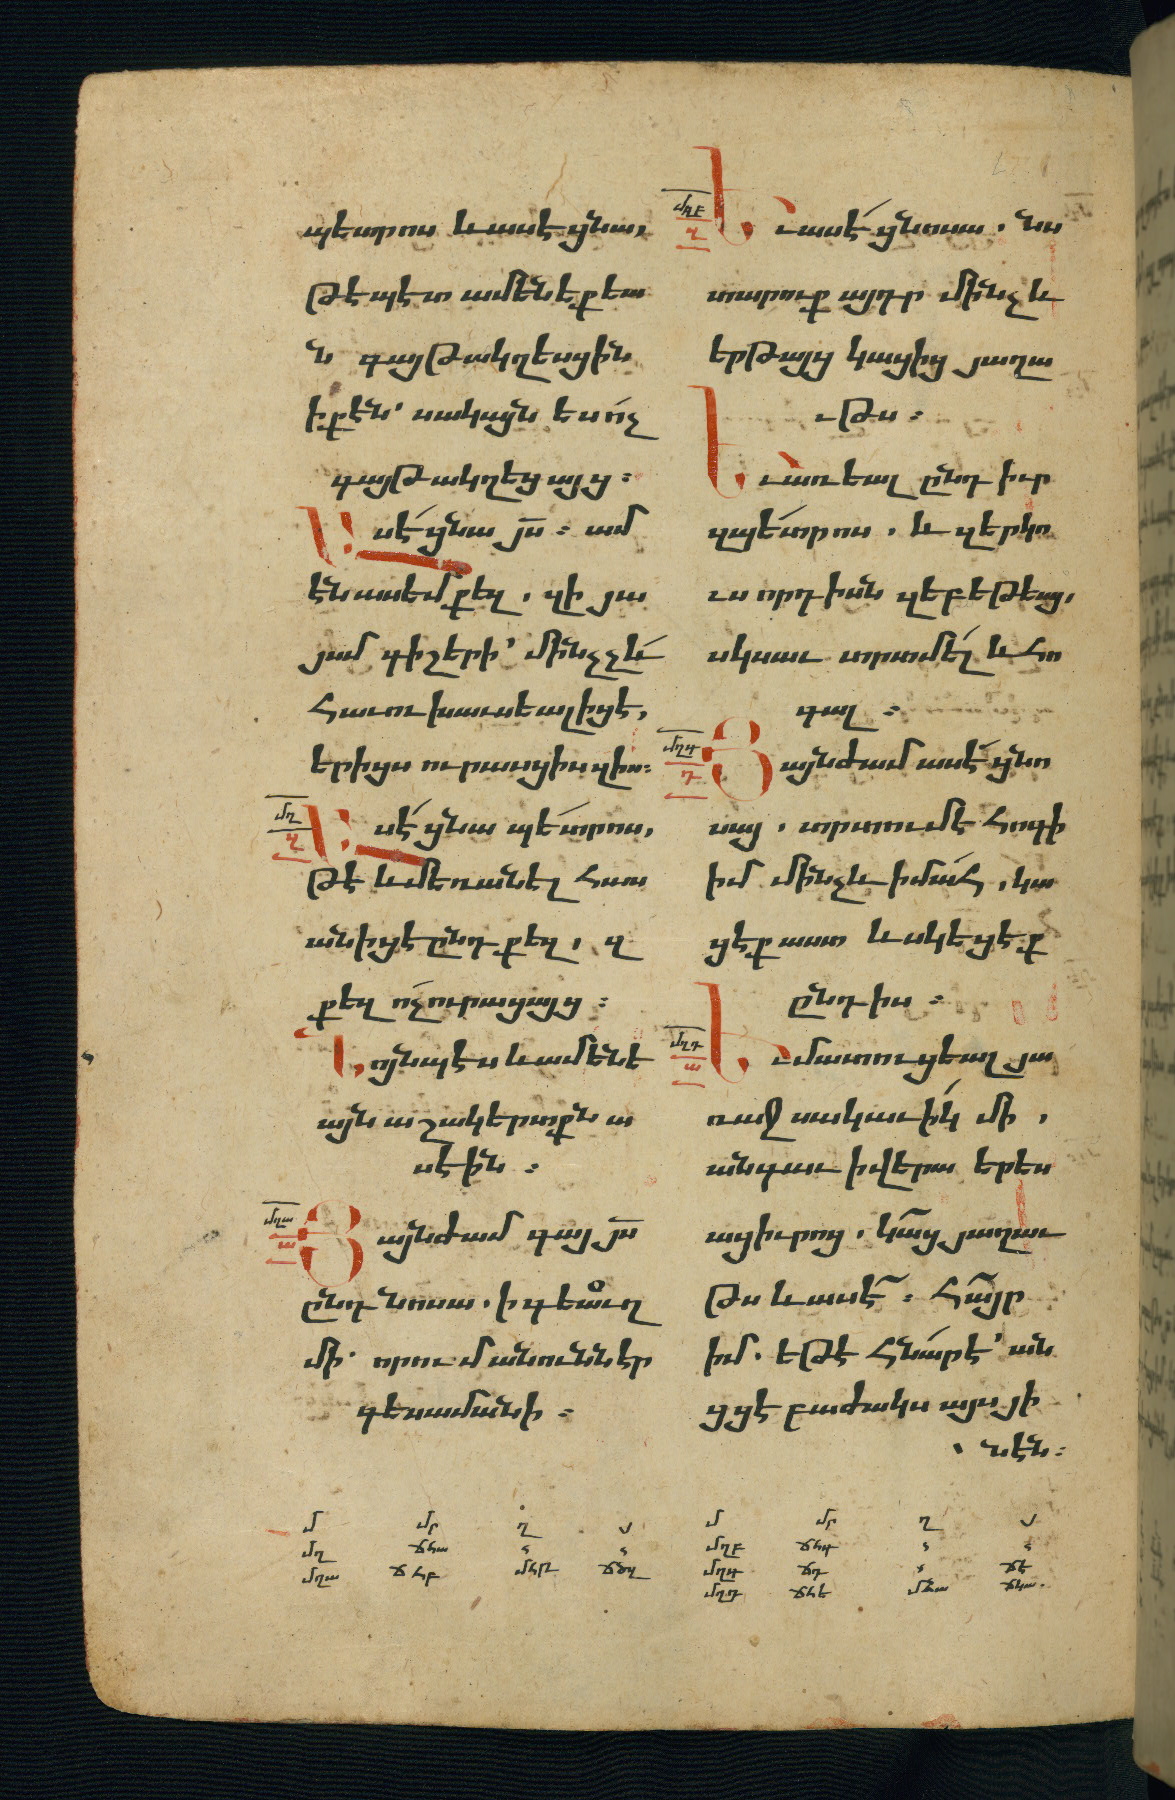 պետրոս և ասէ ցնա,
թէպէտ ամենեքեա
ն գայթակղեսցին
ի քէն՝ սակայն ես ո՛չ
գայթակղեցայց։
Ասէ՛ ցնա յս։ ամ
էն ասեմ քեզ, զի յա
յսմ գիշերի՝ մինչչև՛
հաւու խաւսեալ իցէ,
երիցս ուրասցիս զիս։
մղ
զ
Ասէ՛ ցնա պե՛տրոս,
թէ և մեռանել հաս
անիցէ ընդ քեզ, զ
քեզ ո՛չ ուրացայց։
Նոյնպէս և ամենե
այն աշակերտքն ա
սէին։
մղա
ա
Յայնժամ գայ յս
ընդ նոսա. ի գեաւղ
մի՝ որում անուն նէր
գեսամանի։
մղբ
զ
Եւ ասէ՛ ցնոսա. նս
տարուք այդր մինչև
երթայց կացից յաղա
ւթս։
Եւ առեալ ընդ իւր
զպե՛տրոս. և զերկո
ւս որդիսն զեբեթեայ,
սկսաւ տրտմե՛լ և հո
գալ։
մղգ
դ
Յայնժամ ասէ՛ ցնո
սայ. տրտում է հոգի
իմ մինչև ի մա՛հ, կա
ցէք աստ և սկեցէք
ընդ իս։
մղդ
ա
Եւ մատուցեալ յա
ռաջ սակաւի՛կ մի,
անգաւ ի վերա երես
աց իւրոց. կայց յաղաւ
թս և ասէ՛։ հայր
իմ. եթէ հնա՛ր է՝ ան
ցցէ բաժակս այս յի
նէն։
մ մր ղ յ
մղ ճհա
մղա ճհբ մհթ ճծզ
մ մր ղ յ
մղբ ճհգ
մղգ ճդ ճէ
մղդ ճհե մձա ճկա